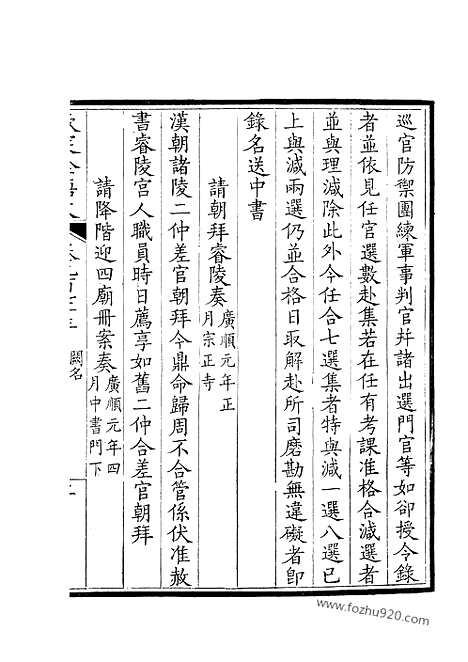 巡官防禦團練軍事判官并諸出選門官等如卻授令錄
者並依見任官選數赴集若在任有考課准格合減選者
並與理減除此外今任合七選集者特與減一選八選已
上與減兩選仍並合格日取解赴所司磨勘無違礙者卽
錄名送中書
請朝拜睿陵奏廣順元年正月宗正寺
漢朝諸陵二仲差官朝拜今鼎命歸周不合管係伏准赦
書睿陵宫人職員時日薦享如舊二仲合差官朝拜
請降階迎四廟冊案奏廣順元年四月中書門下
闕名
www.fozhu920.com